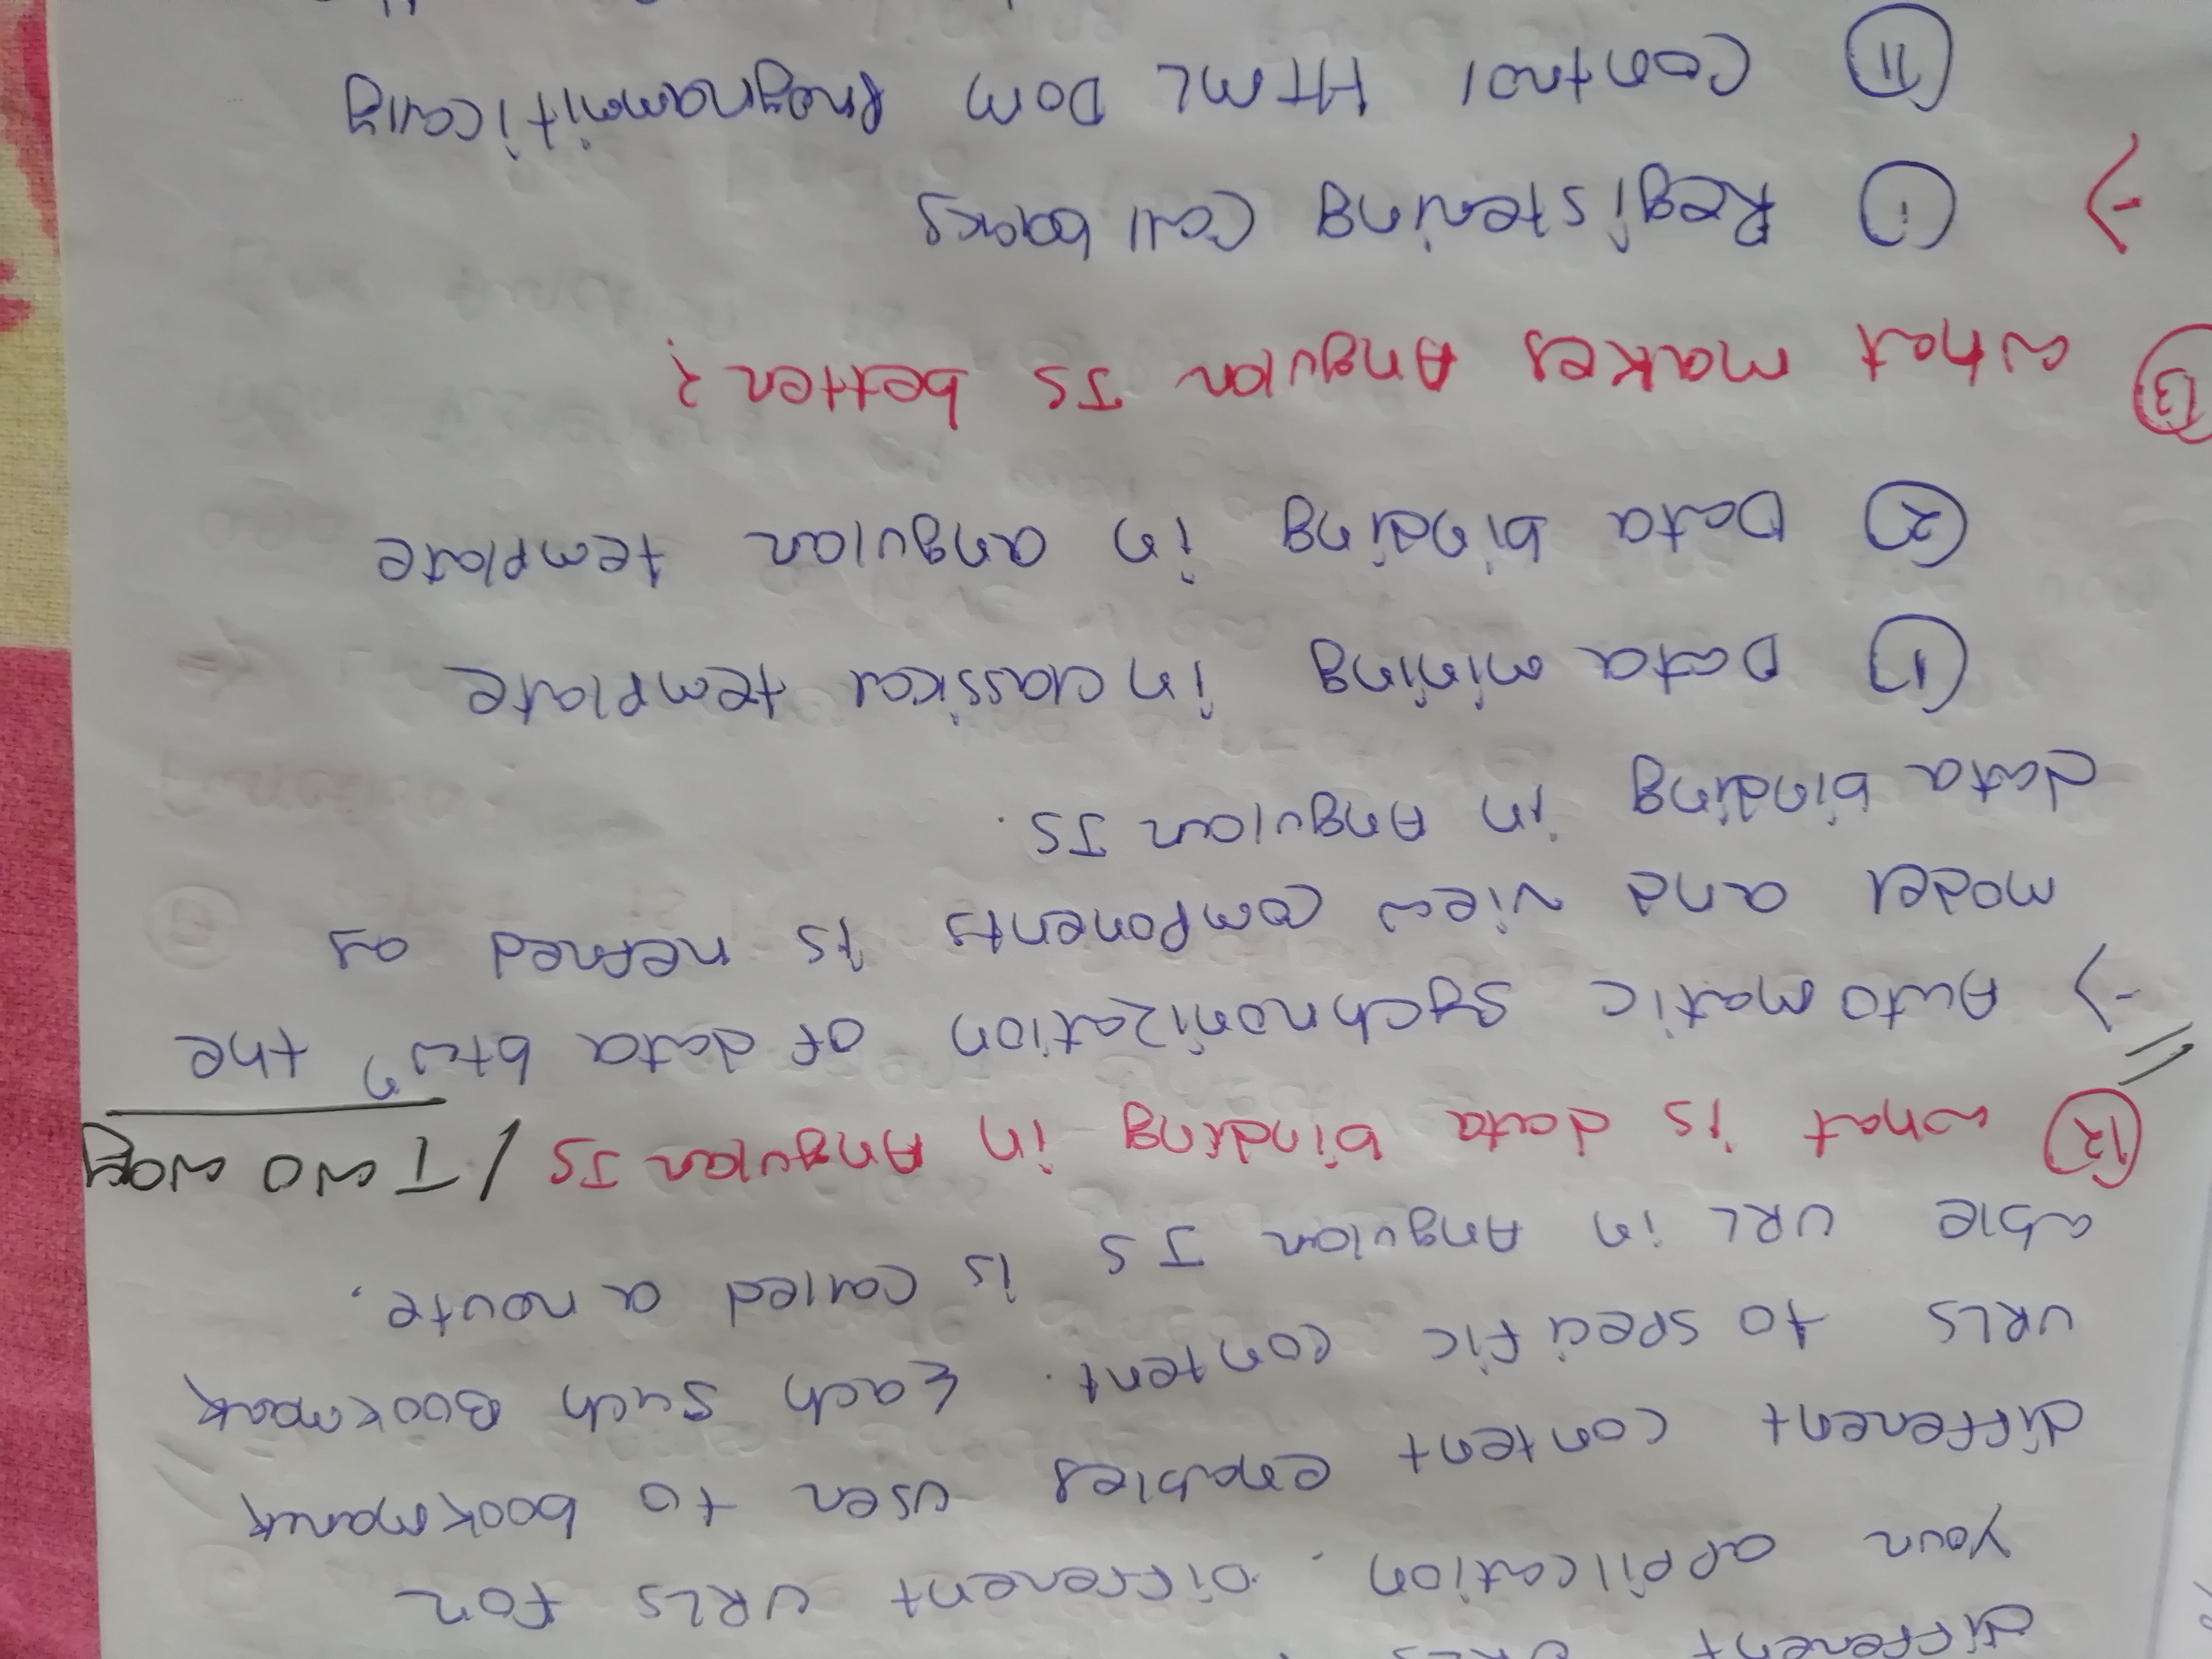 different URLs
your appilcation. Different URLs for
different content enables user to bookmark
URLS to specific content. Each such Bookmark
able URL in Angular JS is called a route.
(12) what is data binding in Angular JS / Two way
-> Automatic sychronization of data btwn the
model and view components is refred as
data binding in Angular JS.
(1) Data mining in classical template
(2) Data binding in angular template
(13) what makes Angular JS better?
-> (i) Registering Call backs
(ii) Control HTML DOM Programmitically